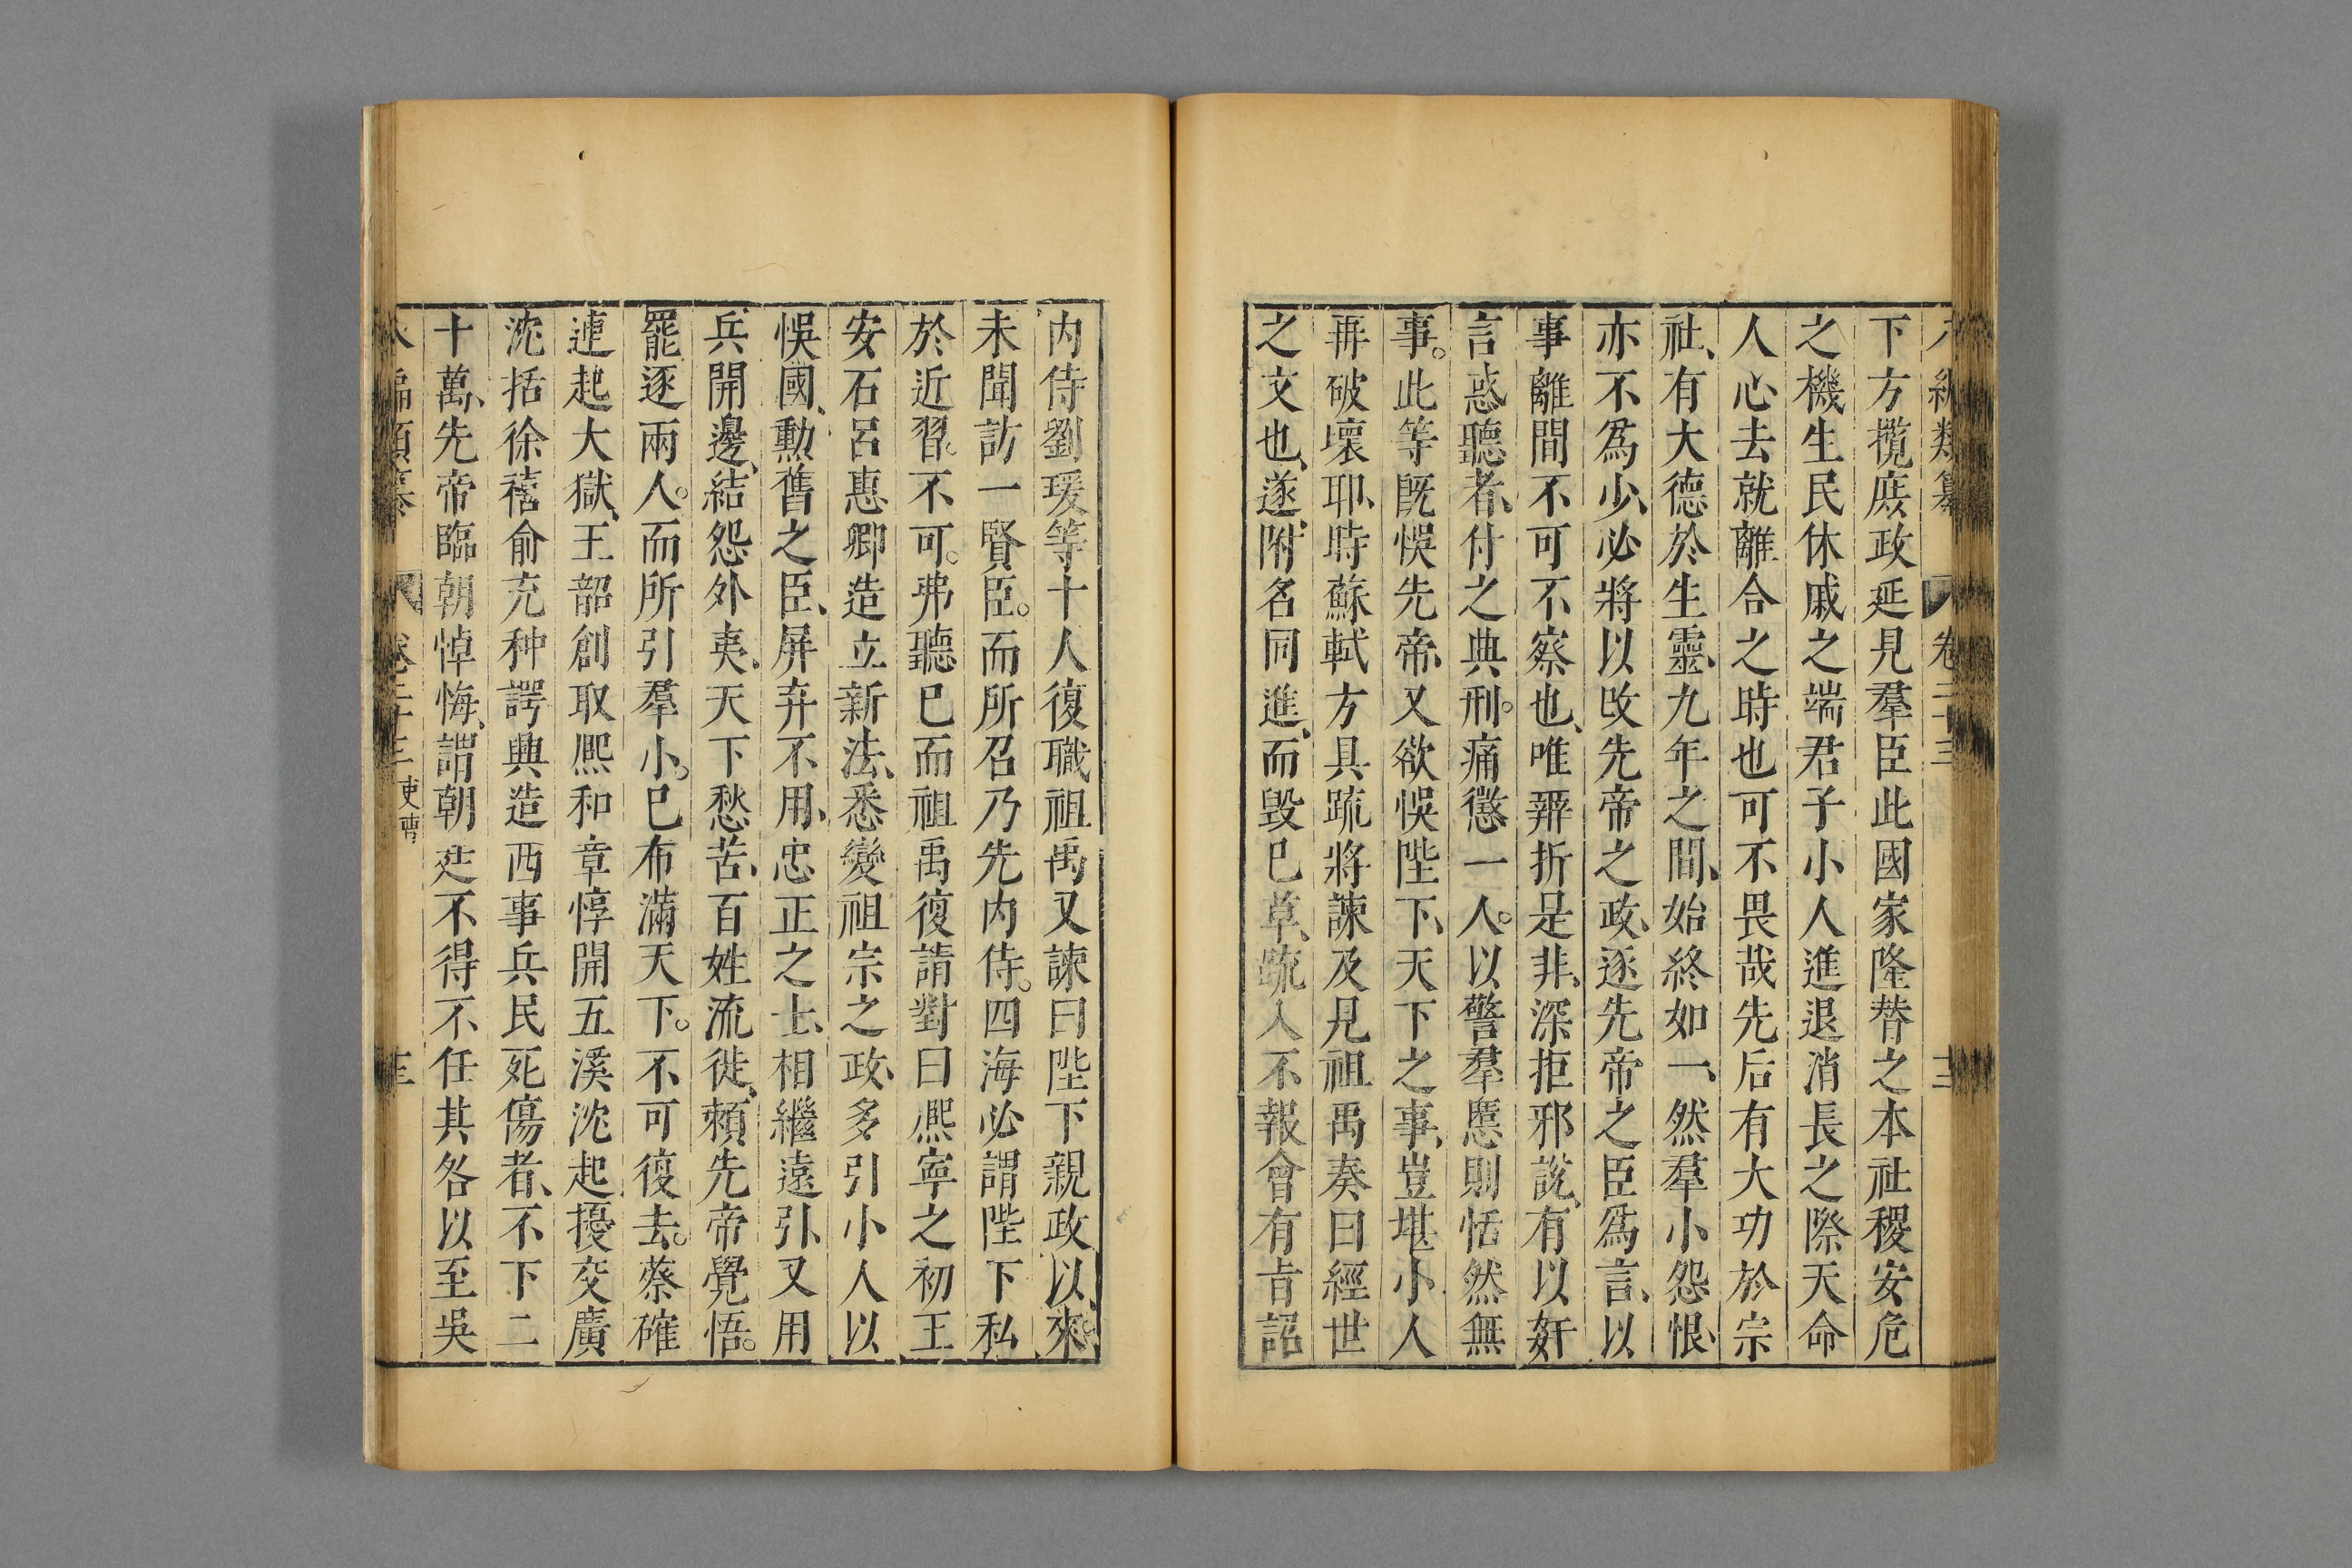 編類纂 卷二十三 十三
下方攬庶政延見羣臣此國家隆替之本社稷安危
之機生民休戚之端君子小人進退消長之際天命
人心去就離合之時也可不畏哉先后有大功於宗
社、有大德於生靈、九年之間、始終如一、然羣小怨恨、
亦不爲少、必將以攺先帝之政、逐先帝之臣爲言、以
事離間不可不察也、唯辨折是非、深拒邪說、有以奸
言惑聽者、付之典刑。痛懲一人。以警羣慝則恬然無
事。此等既悞先帝、又欲悞陛下、天下之事、豈堪小人
再破壞耶、時蘇軾方具疏將諫及見祖禹奏曰經世
之文也、遂附名同進、而毀已草、疏入不報會有旨詔
内侍劉瑗等十人復職祖禹又諫曰陛下親政以來、
未聞訪一賢臣。而所召乃先内侍。四海必謂陛下私
於近習。不可。弗聽已而祖禹復請對曰熈寧之初王
安石呂惠卿造立新法、悉變祖宗之政、多引小人以
悞國、勲舊之臣、屏弃不用、忠正之士、相繼遠引、又用
兵開邊、結怨外夷、天下愁苦、百姓流徙、頼先帝覺悟。
罷逐兩人。而所引羣小。已布滿天下。不可復去。蔡確
連起大獄、王韶創取熈和章惇開五溪沈起擾交廣
沈括徐禧俞充种諤興造西事兵民死傷者、不下二
十萬、先帝臨朝悼悔、謂朝廷不得不任其咎以至吳
編類纂 卷二十三 史傳 十三